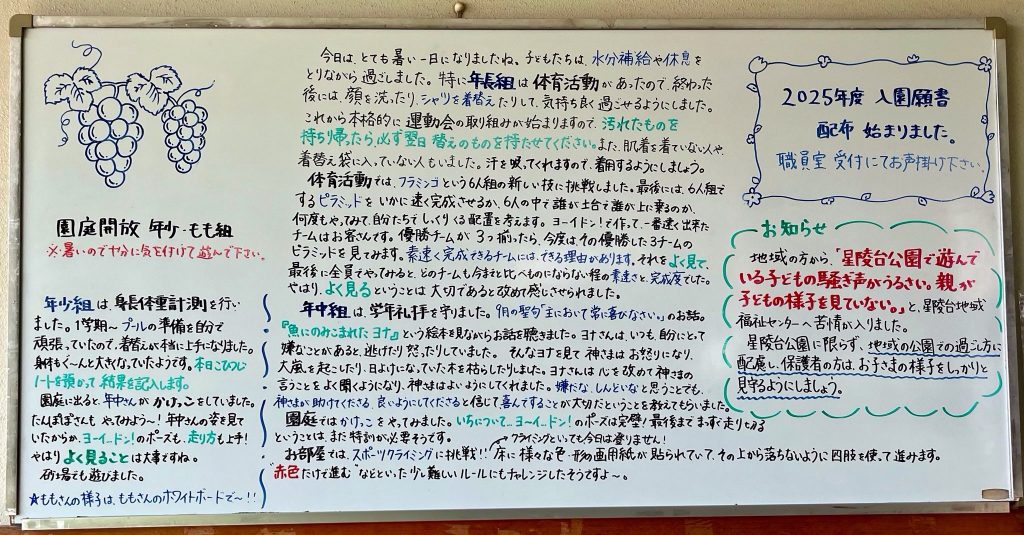 園庭開放 年少・もも組
※暑いので十分に気を付けて遊んで下さい。
年少組は、身長体重計測を行い
ました。1学期〜プールの準備を自分で
頑張っていたので、着替えが本当に上手になりました。
身体もぐ〜んと大きなっていたようです。本日こひつじ
ノートを預かって結果を記入します。
園庭に出ると、年中さんがかけっこをしていました。
たんぽぽさんも やってみよう〜!年中さんの姿を見て
いたからか、ヨーイ…ドン!のポーズも、走り方も上手!
やはり よく見ることは大事ですね。
砂場でも遊びました。
★ももさんの様子は、ももさんのホワイトボードで〜!!
今日は、とても暑い一日になりましたね。子どもたちは、水分補給や休息を
とりながら過ごしました。特に年長組は体育活動があったので、終わった
後には、顔を洗ったり、シャツを着替えたりして、気持ち良く過ごせるようにしました。
これから本格的に運動会の取組みが始まりますので、汚れたものを
持ち帰ったら、必ず翌日替えのものを持たせてください。また、肌着を着ていない人や、
着替え袋に入っていない人もいました。汗を吸ってくれますので、着用するようにしましょう。
体育活動では、フラミンゴという6人組の新しい技に挑戦しました。最後には、6人組で
するピラミッドをいかに速く完成させるか、6人の中で誰が土台で誰が上に乗るのか、
何度もやってみて、自分たちでしっくりくる配置を考えます。ヨーイドン!で作って、一番速く出来た
チームはお客さんです。優勝チームが3つ揃ったら、今度は、その優勝した3チームの
ピラミッドを見てみます。素速く完成できるチームには、できる理由があります。それをよく見て、
最後に全員でやってみると、どのチームも今までと比べものにならない程の素速さと、完成度でした。
やはり、よく見るということは大切であると改めて感じさせられました。
年中組は、学年礼拝を守りました。9月の聖句『主において常に喜びなさい。』のお話。
『魚にのみこまれたヨナ』という絵本を見ながらお話を聴きました。ヨナさんは、いつも自分にとって
嫌なことがあると、逃げたり怒ったりしていました。そんなヨナを見て神さまはお怒りになり、
大風を起こしたり、日よけになっていた木を枯らしたりしました。ヨナさんは心を改めて神さまの
言うことをよく聞くようになり、神さまはよいようにしてくれました。嫌だな、しんどいなと思うことでも、
神さまが助けてくださる、良いようにしてくださると信じて喜んですることが大切だということを教えてもらいました。
園庭では、かけっこをやってみました。いちについて…ヨ〜イ…ドン!のポーズは完璧!最後まで まっすぐ走りきる
ということは、まだ特訓が必要そうです。
クライミングといっても今日は登りません!
お部屋では、スポーツクライミングに挑戦!!床に様々な色・形の画用紙が貼られていて、その上から落ちないように四肢を使って進みます。
"赤色だけで進む"などといった少し難しいルールにもチャレンジしたそうですよ〜。
2025年度 入園願書
配布 始まりました。
職員室 受付にてお声掛け下さい。
お知らせ
地域の方から、「星陵台公園で遊んで
いる子どもの騒ぎ声がうるさい。親が
子どもの様子を見ていない。」と、星陵台地域
福祉センターへ苦情が入りました。
星陵台公園に限らず、地域の公園での過ごし方に
配慮し、保護者の方は、お子さまの様子をしっかりと
見守るようにしましょう。